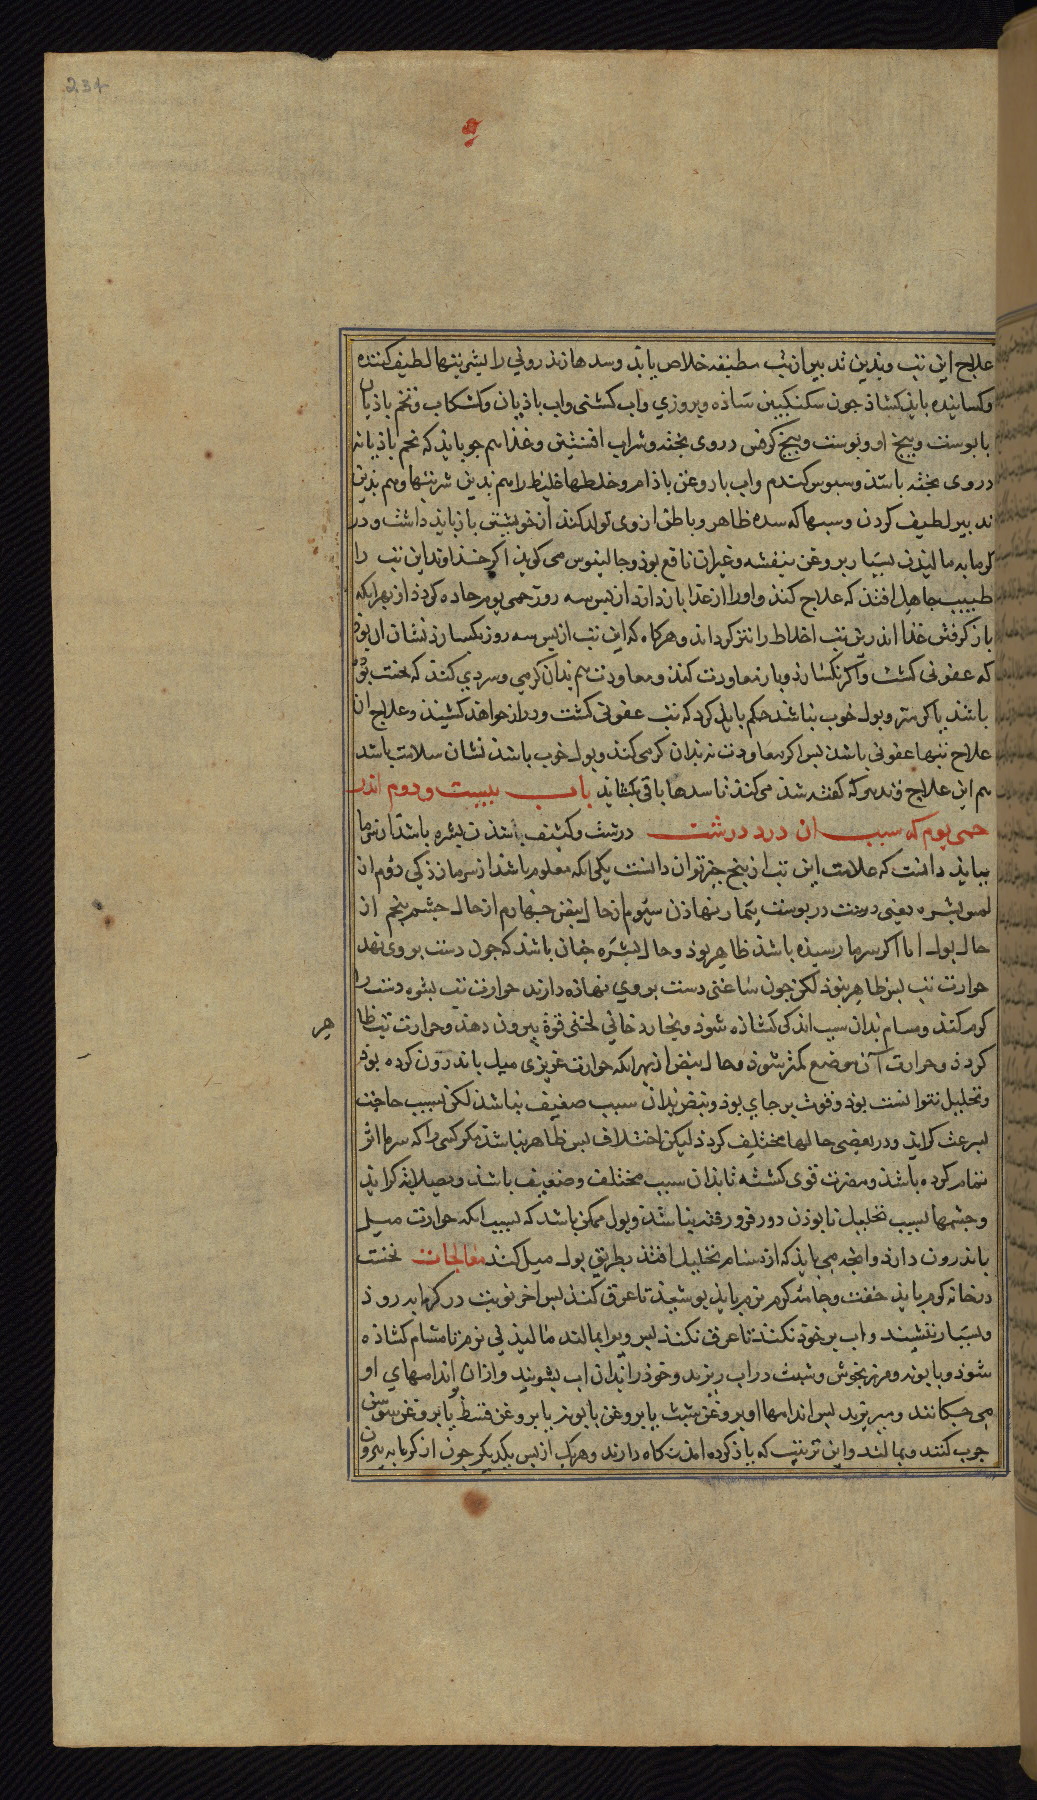 234
علاج این تب و بدین تدبیر از تب مطبقه خلاص یابد و سدها زدرونی را بشربتها لطیف کننده
و کساینده باید کشاذ جون سکنکبین ساذه و بروزی و اب کشنی و اب باذیان و کشکاب و تخم باذیان
با بوست و بیخ او و بوست و بیخ کرفس در وی بخته و شراب افسنتین و غذا هم جو باید که تخم باذیانه
در وی بخته باشد و سبوس کندم و اب با روغن باذام و خلطها غلیظ را هم بدین شربتها و هم بدین
تدبیر لطیف کردن و سببها که سده ظاهر و باطن از وی تولد کند از خویشتن باز باید داشت و در
کرمابه مالیدن بسیار بروغن بنفشه و غیر ان نافع بوذ و جالینوس می کوید اکر خداوند این تب را
طبیب جاهل افتد که علاج کند و او را از غذا باز دارد از بس سه روز حمی یوم حاده کردد از بهر انکه
باز کرفتن غذا اندرین تب اخلاط را تیز کرداند و هرکاه که این تب از بس سه روز بکسارد نشان ان بوذ
که عفونی کشت و اکر بکسارد و باز معاودت کند و معاودت هم بدان کرمی و سردی کند که نخست بوذه
باشد یا کرمتر و بول خوب نباشد حکم باید کرد که تب عفونی کشت و دراز خواهد کشید و علاج ان
علاج تبها عفونی باشد بس اکر معاودت نه بدان کرمی کند و بول خوب باشد نشان سلامت باشد
هم این علاج که کفته شد می کند تا سدها باقی بکشاید باب بیست و دوم اندر
حمی یوم که سبب ان درد درشت درشت و کثیف شدن بشره باشد از سرما
بباید دانست که علامت این تب از بنج جیز توان دانست یکی انکه معلوم باشد از سرمازدکی دوم از
لمس بشره یعنی دست در بوست بیمار نهاذن سیوم از حال نبض جهارم از حال جشم بنجم از
حال بول اما اکر سرما رسیده باشد ظاهر بوذ و حال بشره جنان باشد که جون دست بر وی نهد
حرارت تب بس ظاهر نبوذ لکن جون ساعتی دست بر وی نهاذه دارند حرارت تب بشره دست را
کرم کند و مسام بدان سبب اندکی کشاذه شوذ و بخار دخانی لختی قوة بیرون دهد و حرارت تب ظا
هر
کردذ و حرارت آن موضع کمتر شوذ و حال نبض از بهر انکه حرارت غریزی میل باندرون کرده بوذ
و تحلیل نتوانست بوذ و قوت بر جای بوذ و نبض بدان سبب صغیف نباشد لکن بسبب حاجت
بسرعت کراید و در بعضی حالها مختلف کردذ لیکن اختلاف بس ظاهر نباشد مکر کسی را که سرما اثر
تمام کرده باشذ و مضرت قوی کشته تا بدان سبب مختلف و ضعیف باشذ و بصلابه کراید
و جشمها بسبب تحلیل نا بوذن دور فرو رفته نباشد و بول ممکن باشد که بسبب انکه حرارت میل
باندرون دارد و انجه می باید که از مسام تحلیل افتد بطریق بول میل کند معالجات نخست
در خانه کرم باید خفت و جامه کرم نرم باید بوشید تا عرق کند بس اخر نوبت در کرمابه روذ
و بسیار ننشیند و اب بر خوذ نکند تا عرق نکند بس ویرا بمالند مالیدنی نرم تا مشام کشاذه
شوذ و بابونه و مرزنجوش و شبت در اب بزند و خوذ را بدان اب بشویند و از ان بر اندامهای او
می جکانند و میریزند بس اندامها او بروغن شبت یا بروغن بابونه یا بروغن قسط یا بروغن سوسن
جرب کنند و بمالند و این ترتیب که یاذ کرده امد نکاه دارند و هر یک از بس یکدیکر جون از کرمابه بیرون